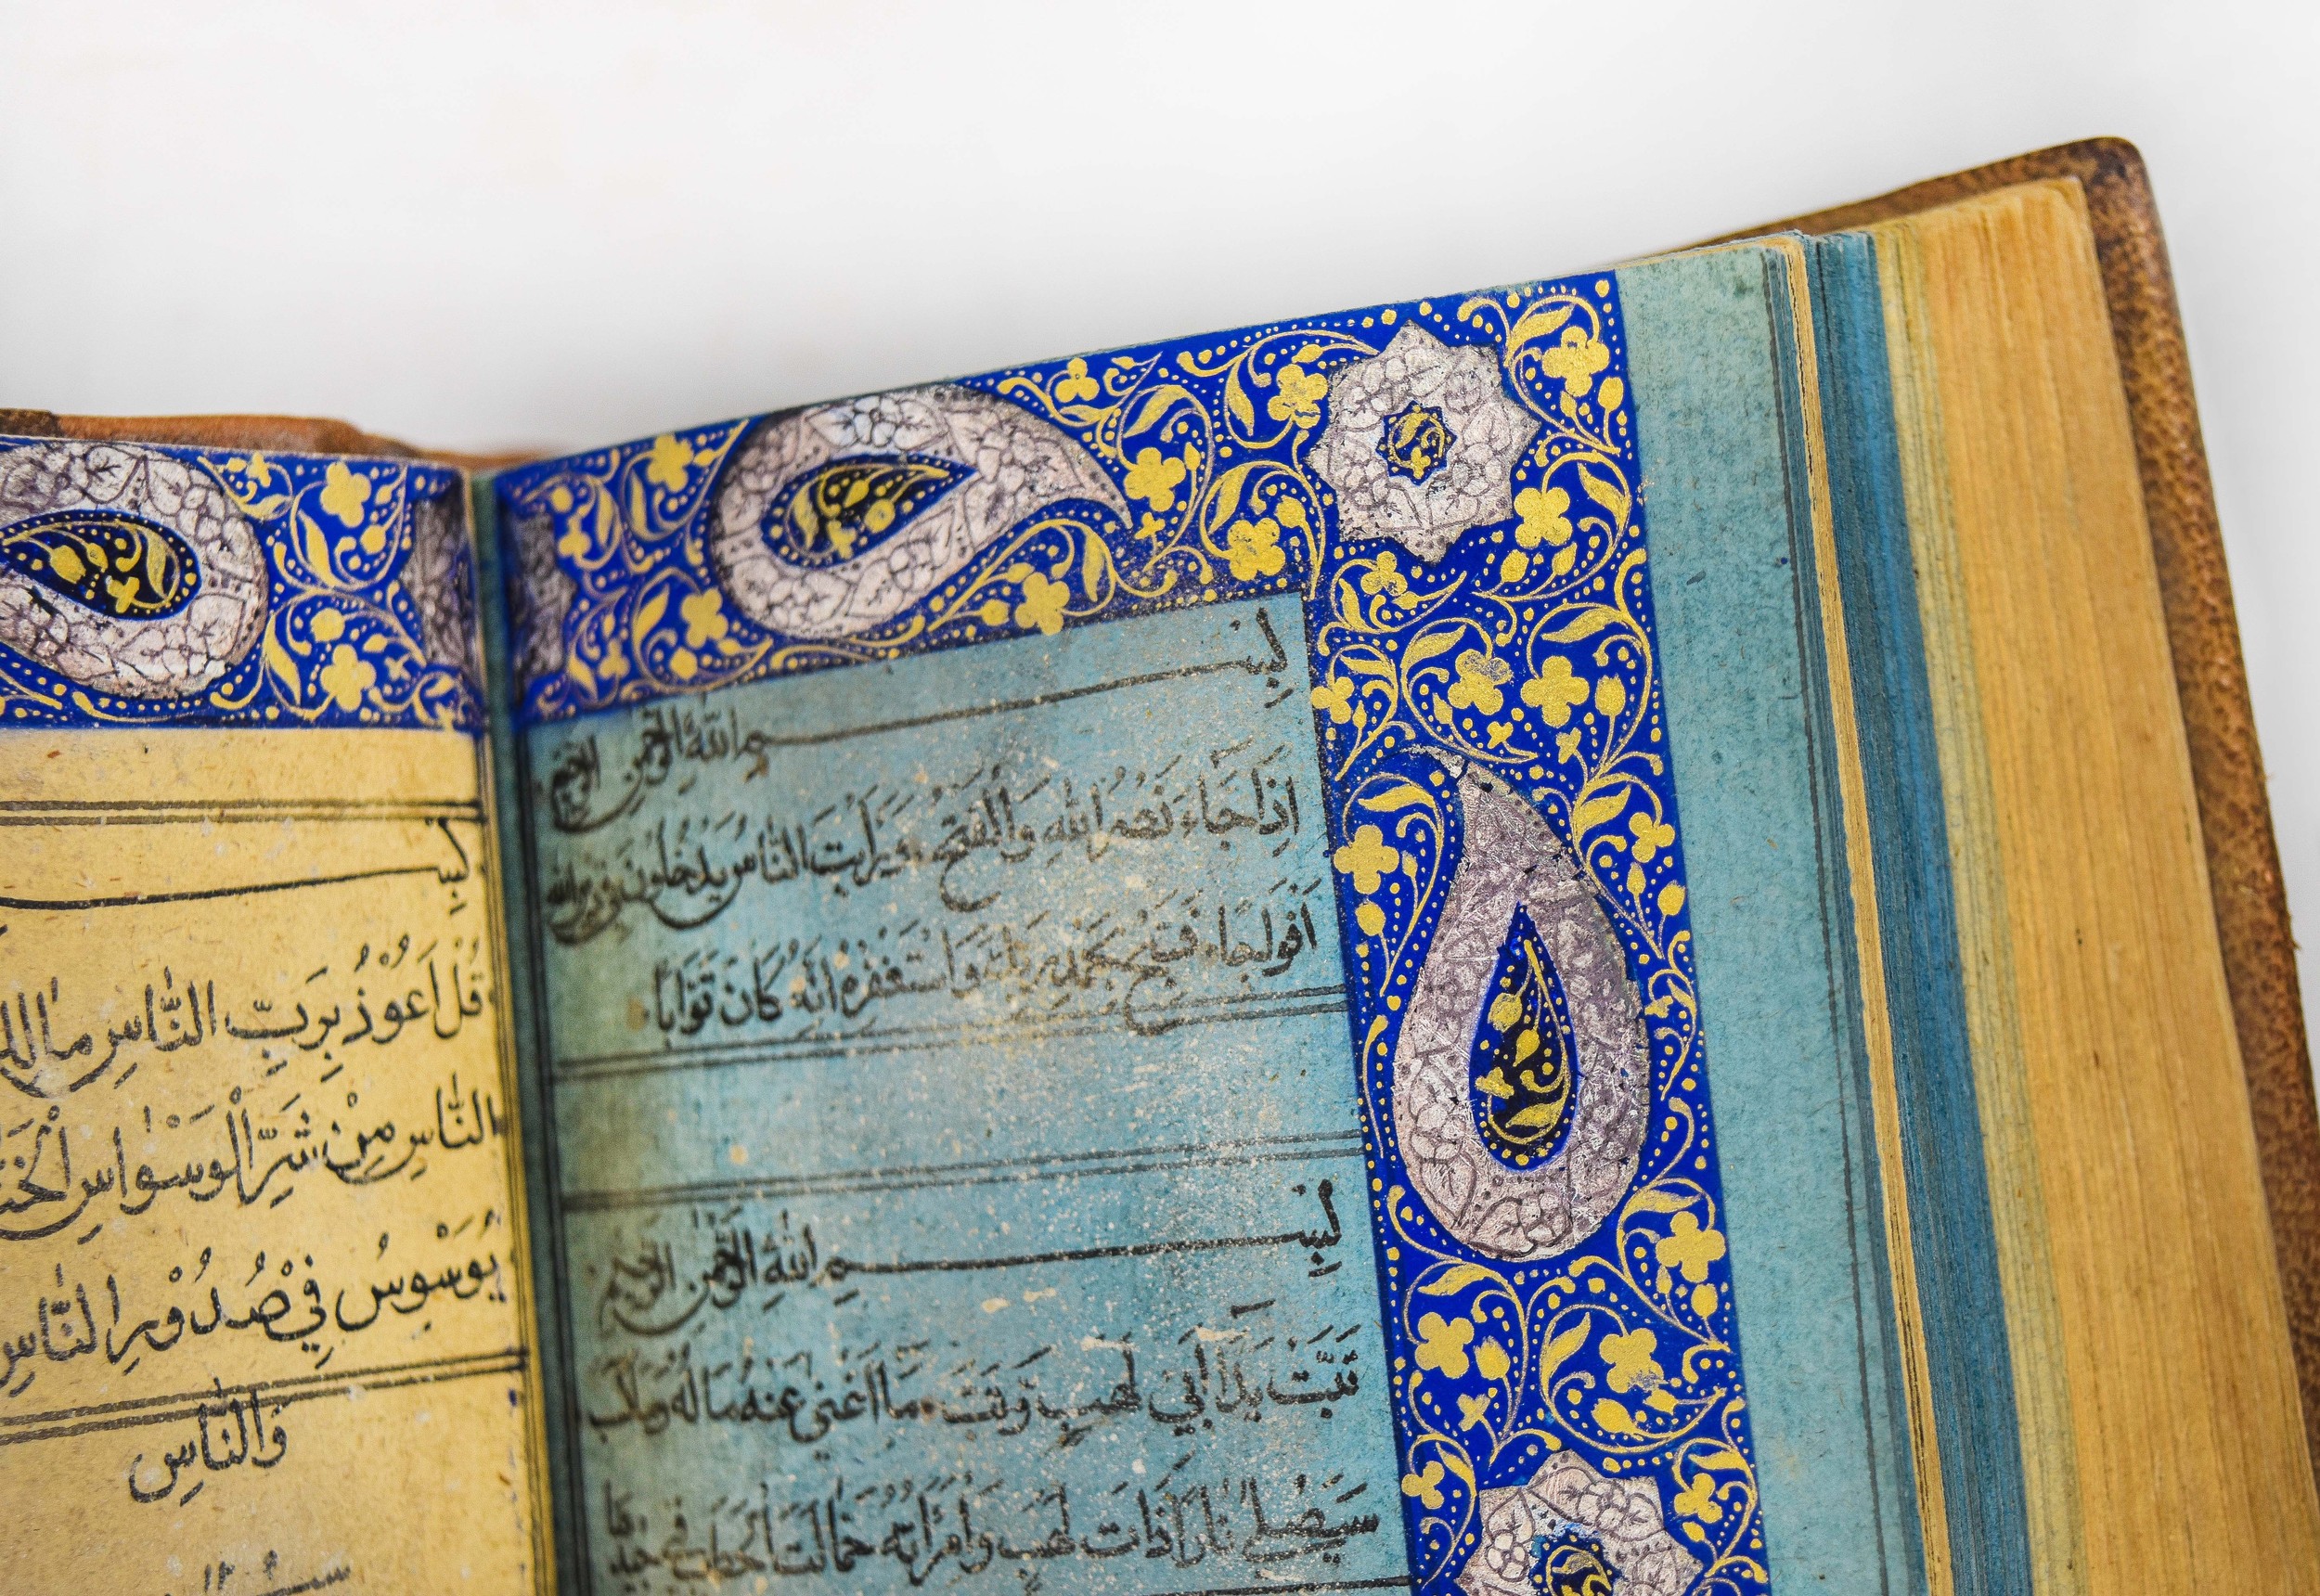 بســـــم الله الرحمن الرحيم
اِذَا جَاءَ نَصْرُ اللهِ وَالْفَتْحُ وَرَاَيْتَ النَّاسَ يَدْخُلُونَ فِي دِينِ الله
اَفْوَاجًا فَسَبِّحْ بِحَمْدِ رَبِّكَ وَاسْتَغْفِرْهُ اِنَّهُ كَانَ تَوَّابًا
بســـــم اللهِ الرَّحْمٰنِ الرَّحِيم
تَبَّتْ يَدَا اَبِي لَهَبٍ وَتَبَّ مَا اَغْنٰى عَنْهُ مَالُهُ وَمَا كسب
سَيَصْلٰى نَارًا ذَاتَ لَهَبٍ وَامْرَاَتُهُ حَمَّالَةَ الْحَطَبِ فِي جِيدِهَا
بســـــ
قُلْ اَعُوْذُ بِرَبِّ النَّاسِ
النَّاسِ مِنْ شَرِّ الْوَسْوَاسِ
يُوَسْوِسُ فِيْ صُدُوْرِ النَّاسِ
وَالنَّاسِ